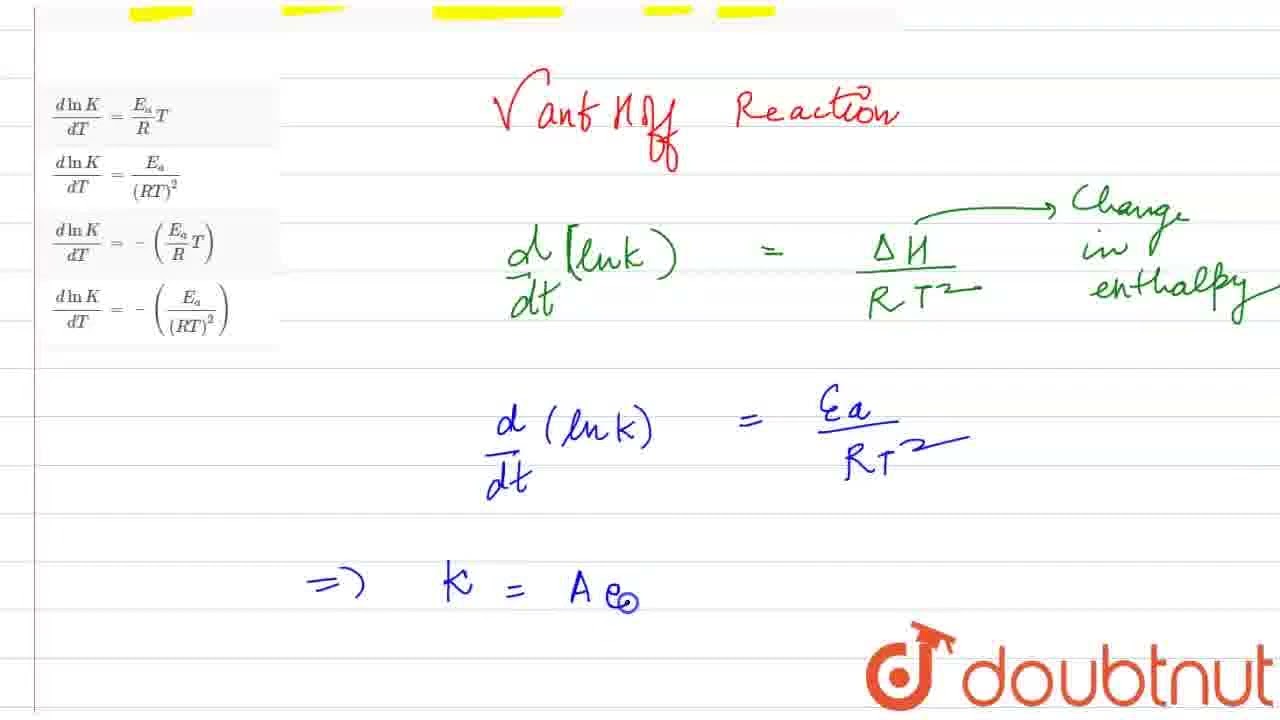 d ln K / dT = E_a / R T
d ln K / dT = E_a / (RT)^2
d ln K / dT = - (E_a / R T)
d ln K / dT = - (E_a / (RT)^2)
Vant Hoff Reaction
d/dt (ln k) = ΔH / RT^2 → Change in enthalpy
d/dt (ln k) = Ea / RT^2
=> K = A e
doubtnut